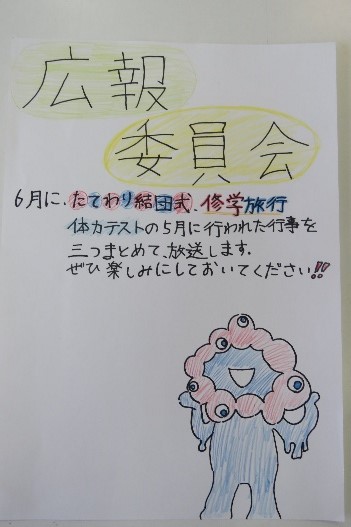 広報
委員会
6月に、たてわり結団式、修学旅行
体力テストの5月に行われた行事を
三つまとめて、放送します。
ぜひ楽しみにしておいてください!!